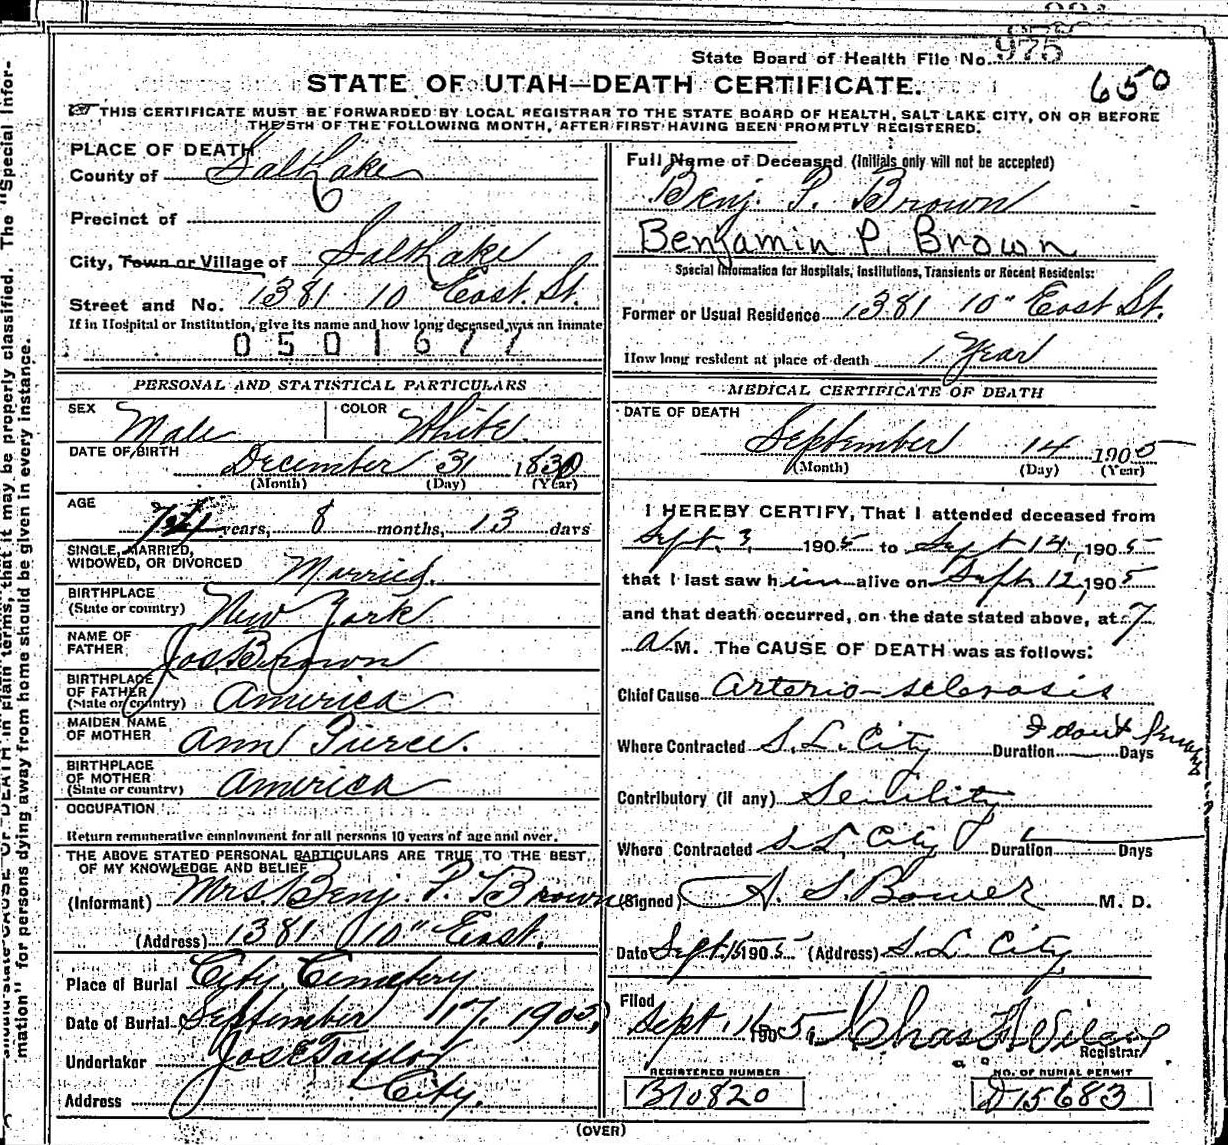 State Board of Health File No. 975
650
STATE OF UTAH—DEATH CERTIFICATE.
THIS CERTIFICATE MUST BE FORWARDED BY LOCAL REGISTRAR TO THE STATE BOARD OF HEALTH, SALT LAKE CITY, ON OR BEFORE
THE 5TH OF THE FOLLOWING MONTH, AFTER FIRST HAVING BEEN PROMPTLY REGISTERED.
PLACE OF DEATH
County of Salt Lake
Precinct of
City, Town or Village of Salt Lake
Street and No. 1381 10 East. St.
If in Hospital or Institution, give its name and how long deceased was an inmate
0501677
PERSONAL AND STATISTICAL PARTICULARS
SEX Male COLOR White.
DATE OF BIRTH December 31 1830
(Month) (Day) (Year)
AGE years, 8 months, 13 days
SINGLE, MARRIED,
WIDOWED, OR DIVORCED Married.
BIRTHPLACE
(State or country) New York
NAME OF
FATHER Jos. Brown
BIRTHPLACE
OF FATHER
(State or country) America
MAIDEN NAME
OF MOTHER Ann Pierce.
BIRTHPLACE
OF MOTHER
(State or country) America
OCCUPATION
Return remunerative employment for all persons 10 years of age and over.
THE ABOVE STATED PERSONAL PARTICULARS ARE TRUE TO THE BEST
OF MY KNOWLEDGE AND BELIEF
(Informant) Mrs. Benj. P. Brown
(Address) 1381 10" East.
Place of Burial City Cemetery
Date of Burial September 17, 1905,
Undertaker Jos E Taylor
Address City.
Full Name of Deceased (Initials only will not be accepted)
Benj. P. Brown
Benjamin P. Brown
Special Information for Hospitals, Institutions, Transients or Recent Residents:
Former or Usual Residence 1381 10" East St.
How long resident at place of death 1 Year
MEDICAL CERTIFICATE OF DEATH
DATE OF DEATH
September 14 1905
(Month) (Day) (Year)
I HEREBY CERTIFY, That I attended deceased from
Sept. 3, 1905 to Sept 14, 1905
that I last saw him alive on Sept. 12, 1905
and that death occurred, on the date stated above, at 7
a M. The CAUSE OF DEATH was as follows:
Chief Cause Arterio-sclerosis
Where Contracted S. L. City Duration I don't know Days
Contributory (if any) Senility
Where Contracted S. L. City Duration Days
(Signed) A. S. Bower M. D.
Date Sept. 15 1905 (Address) S. L. City
Filed
Sept. 1905, Chas
Registrar
REGISTERED NUMBER
B10820
NO. OF BURIAL PERMIT
D15683
(OVER)
in plain terms, that it may be properly classified. The "Special Infor-
mation" for persons dying away from home should be given in every instance.